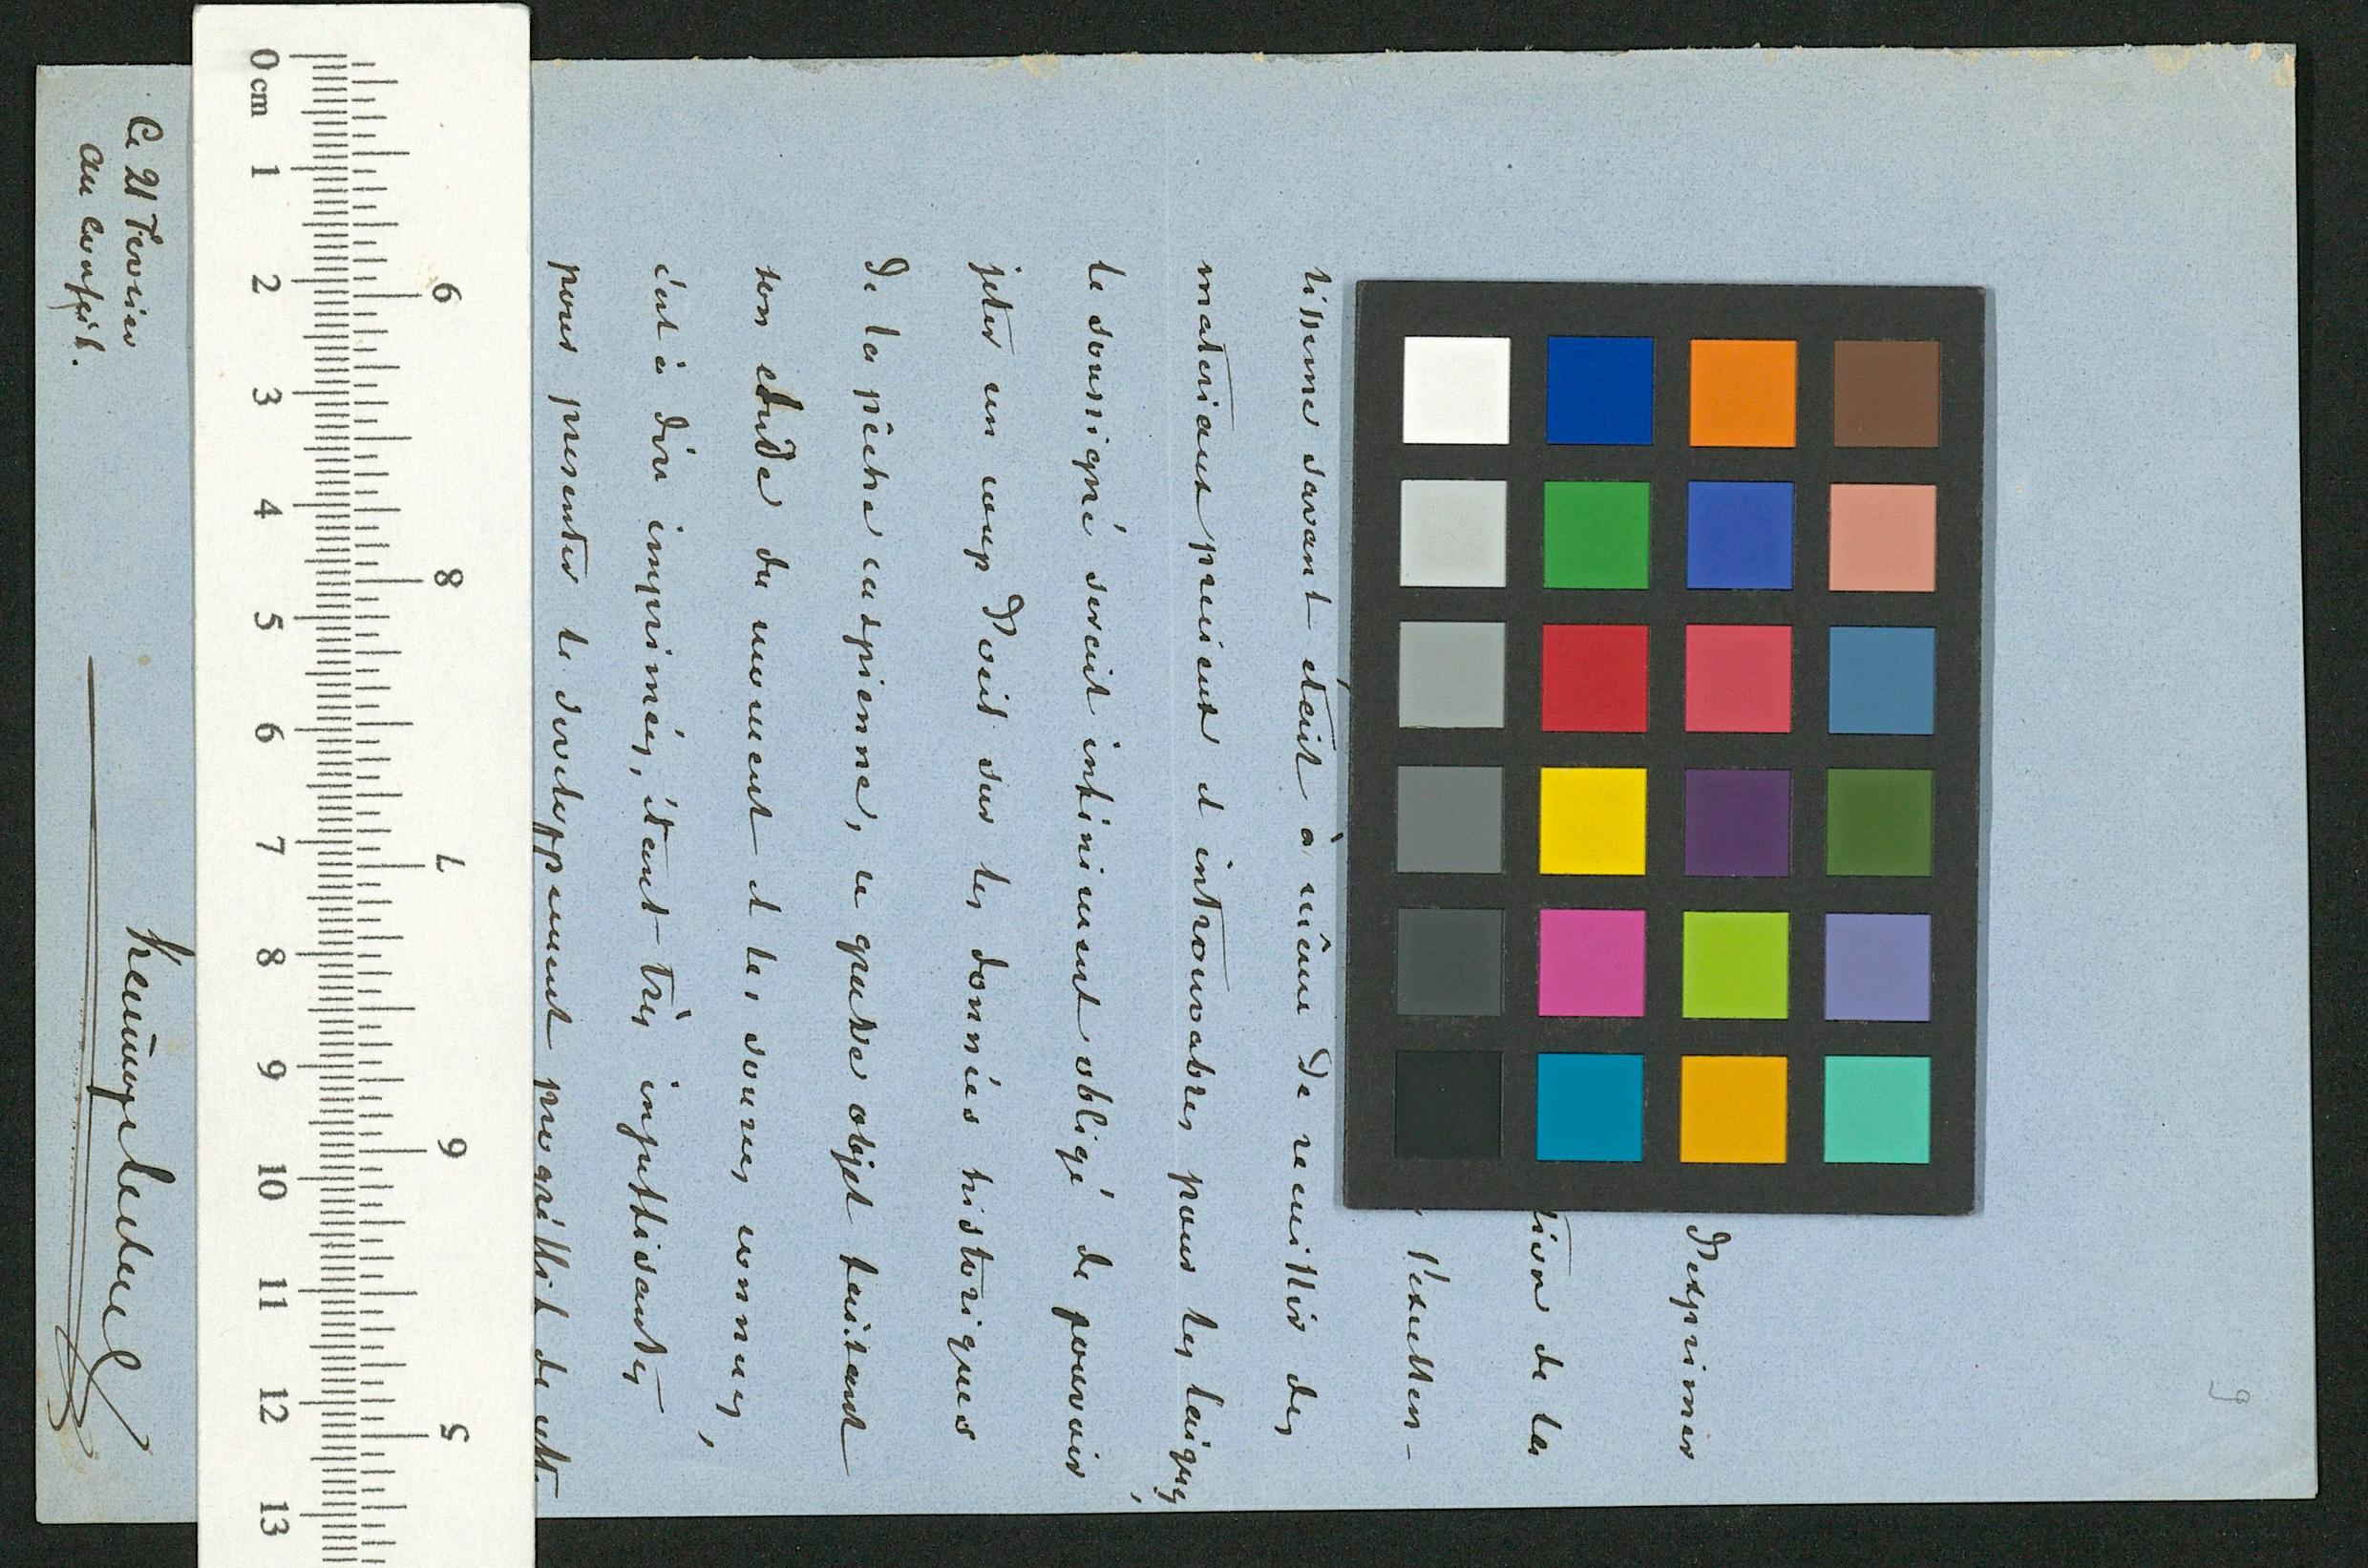 d'exprimer
tion de la
l'excellen-
tissime savant était à même de recueillir des
materiaux précieux et introuvables pour les laiques,
le soussigné serait infiniment obligé de pouvoir
jeter un coup d'œil sur les donnés historiques
de la pêche caspienne, ce grave objet faisant
son etude du moment et les sources connues,
c'est à dire imprimées, étant très insuffisantes
pour presenter le developpement progressif de cett.
Ce 21 Fevrier
au conseil.
0cm 1 2 3 4 5 6 7 8 9 10 11 12 13
9 8 7 6 5